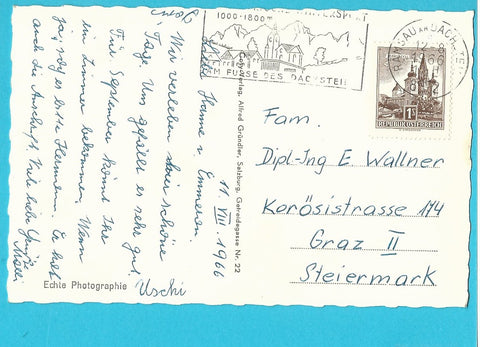 1000-1800 m
AM FUSSE DES DACHSTEIN
RAMSAU AM DACHSTEIN
REPUBLIK ÖSTERREICH
Fam.
Dipl-Ing E. Wallner
Körösistrasse 174
Graz II
Steiermark
11. VIII. 1966
Liebe Hanne u. Emmeren.
Wir verleben hier schöne
Tage. Uns gefällt es sehr gut.
Für September könnt Ihr
ein Zimmer bekommen. Wenn
ja, sag es bitte Hermann. Er hat
auch die Anschrift. Viele liebe Grüße
Uschi
Echte Photographie
Cosy-Verlag, Alfred Gründler, Salzburg, Getreidegasse Nr. 22